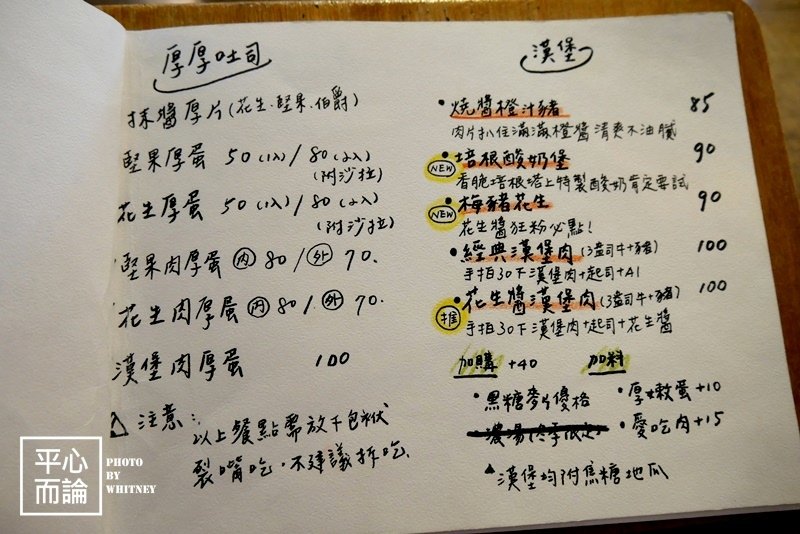 厚厚吐司
抹醬厚片(花生、堅果、伯爵)
堅果厚蛋 50(1入)/80(2入)
(附沙拉)
花生厚蛋 50(1入)/80(2入)
(附沙拉)
堅果肉厚蛋 內 80/外 70.
花生肉厚蛋 內 80/外 70.
漢堡肉厚蛋 100
注意:
以上餐點需放千包袱
裂嘴吃,不建議拆吃
漢堡
•燒醬橙汁豬 85
肉片扒住滿滿橙醬清爽不油膩
NEW •培根酸奶堡 90
香脆培根搭上特製酸奶肯定要試
NEW •梅豬花生 90
花生醬狂粉必點!
•經典漢堡肉(3盎司牛+豬) 100
手拍30下漢堡肉+起司+41
推 •花生醬漢堡肉(3盎司牛+豬) 100
手拍30下漢堡肉+起司+花生醬
加購 +40
•黑糖麥片優格
濃湯(冬季限定)
加料
•厚嫩蛋+10
•愛吃肉+15
▲漢堡均附焦糖地瓜
平心
而論
PHOTO
BY
WHITNEY